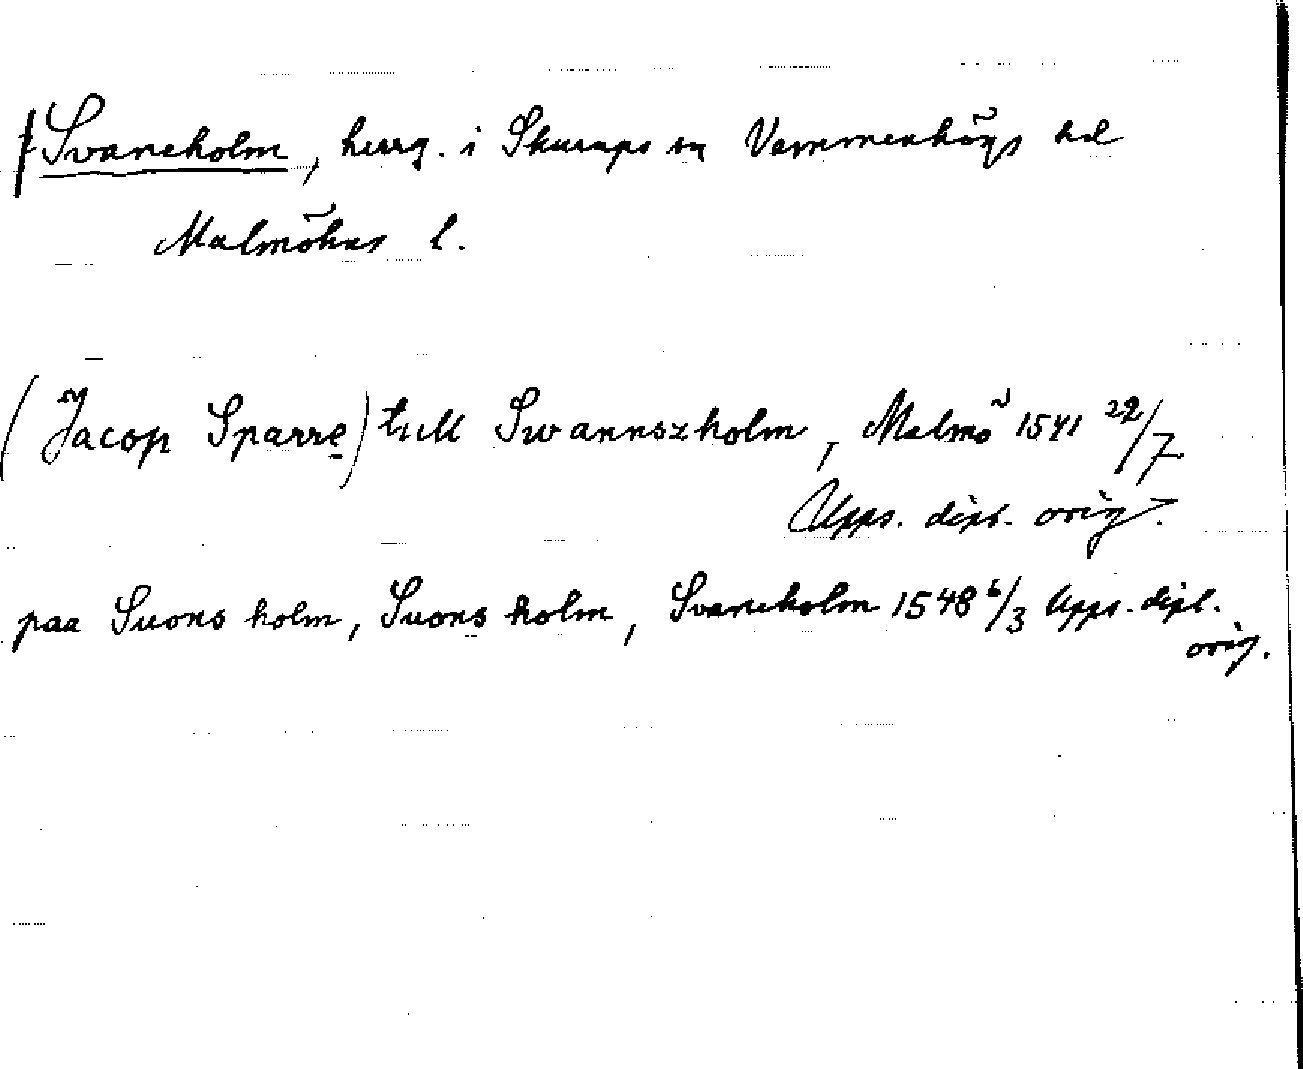 Svaneholm, herrg. i Skurups sn Vemmenhögs hd
Malmöhus l.
(Jacop Sparre) till Swannszholm, Malmö 1541 22/7.
Upps. dipl. orig.
paa Suons holm, Suons holm, Svaneholm 1548 6/3 Upps. dipl.
orig.